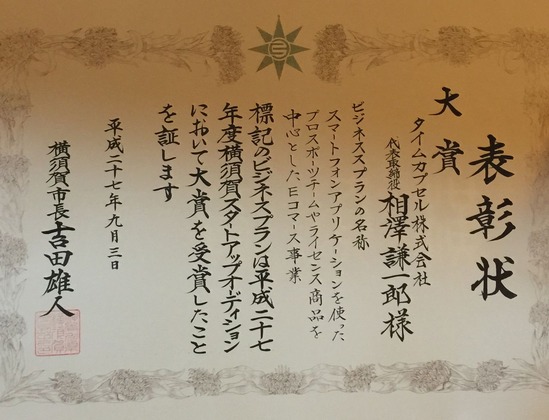 表彰状
大賞
タイムカプセル株式会社
代表取締役 相澤謙一郎様
ビジネスプランの名称
スマートフォンアプリケーションを使った
プロスポーツチームやライセンス商品を
中心としたEコマース事業
標記のビジネスプランは平成二十七
年度横須賀スタートアップオーディション
において大賞を受賞したこと
を証します
平成二十七年九月三日
横須賀市長 吉田雄人